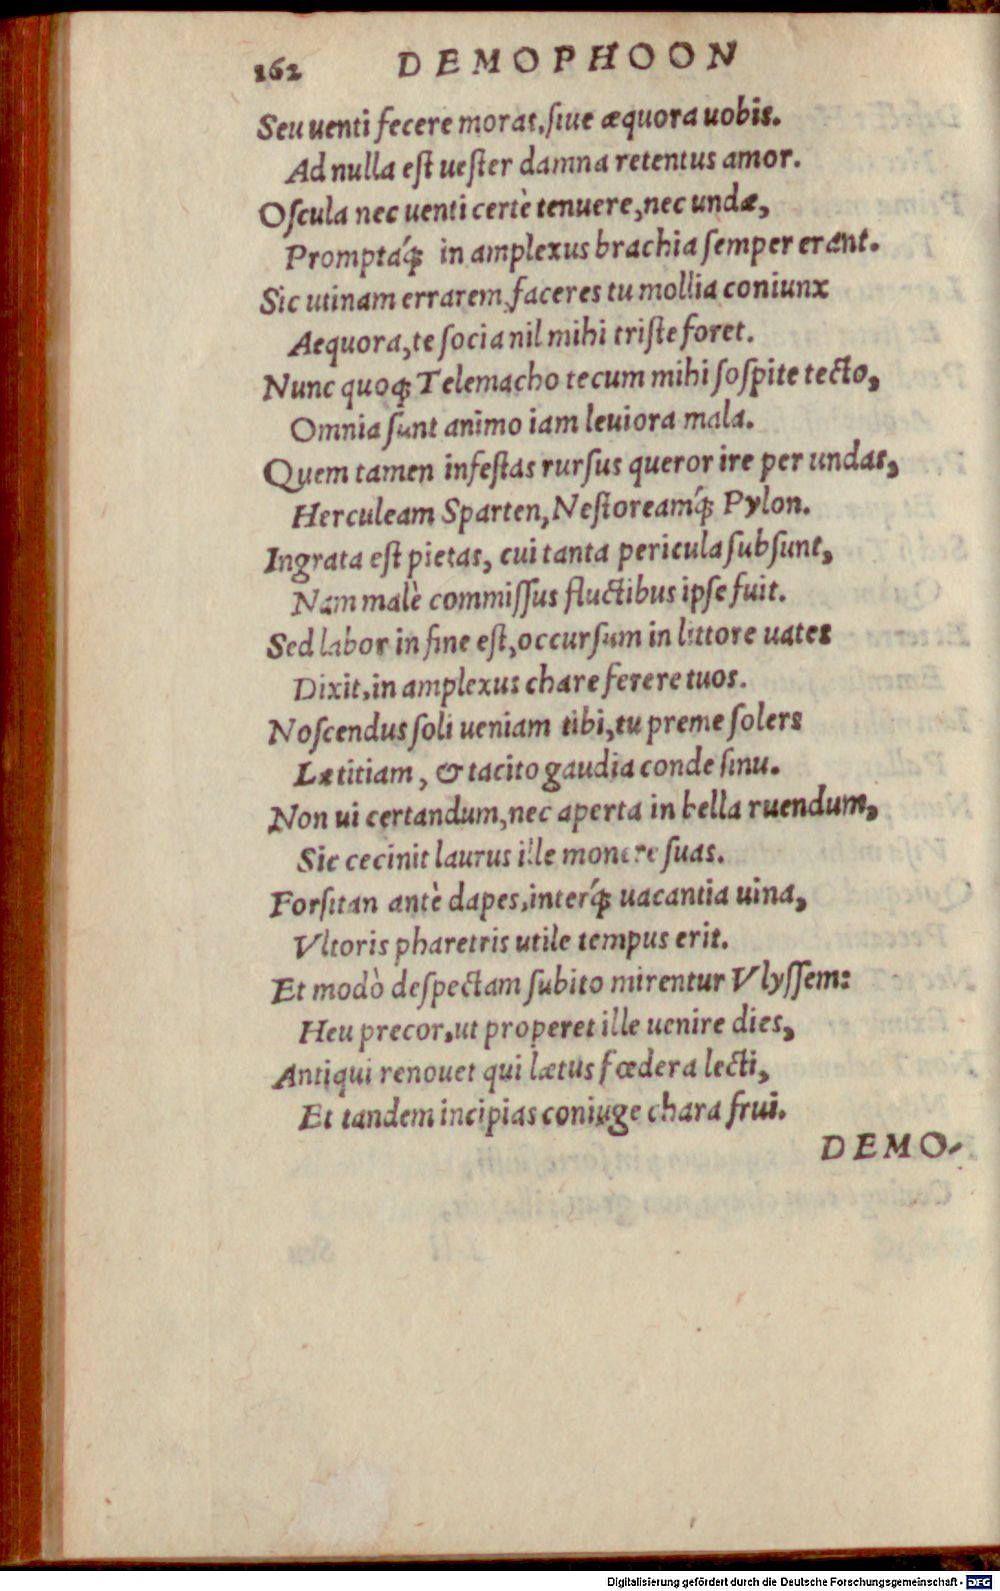 162 DEMOPHOON
Seu uenti fecere moras, ſiue æquora uobis.
Ad nulla eſt ueſter damna retentus amor.
Oſcula nec uenti certè tenuere, nec undæ,
Promptáq́; in amplexus brachia ſemper erant.
Sic utinam errarem, faceres tu mollia coniunx
Aequora, te ſocia nil mihi triſte foret.
Nunc quoq; Telemacho tecum mihi ſoſpite tecto,
Omnia ſunt animo iam leuiora mala.
Quem tamen infeſtas rurſus queror ire per undas,
Herculeam Sparten, Neſtoreamq́; Pylon.
Ingrata eſt pietas, cui tanta pericula ſubſunt,
Nam malè commiſſus fluctibus ipſe fuit.
Sed labor in fine eſt, occurſum in littore uates
Dixit, in amplexus chare ferere tuos.
Noſcendus ſoli ueniam tibi, tu preme ſolers
Lætitiam, & tacito gaudia conde ſinu.
Non ui certandum, nec aperta in bella ruendum,
Sic cecinit laurus ille monere ſuas.
Forſitan antè dapes, interq́; uacantia uina,
Vltoris pharetris utile tempus erit.
Et modò deſpectam ſubito mirentur Vlyſſem:
Heu precor, ut properet ille uenire dies,
Antiqui renouet qui lætus fœdera lecti,
Et tandem incipias coniuge chara frui.
DEMO-
Digitalisierung gefördert durch die Deutsche Forschungsgemeinschaft - DFG